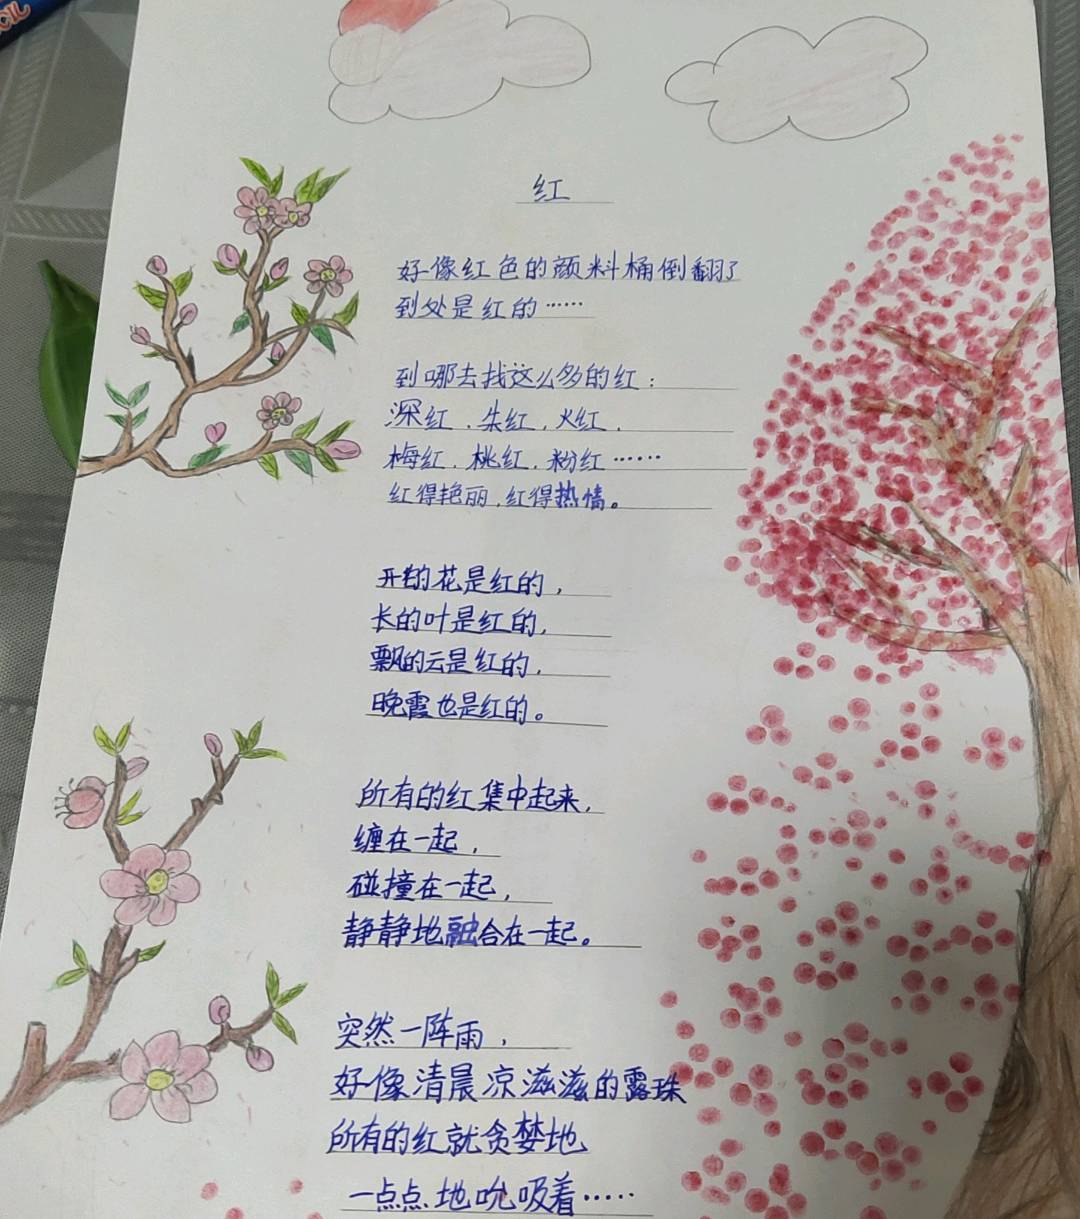 红
好像红色的颜料桶倒翻了
到处是红的……
到哪去找这么多的红：
深红、朱红、火红、
梅红、桃红、粉红……
红得艳丽，红得热情。
开的花是红的，
长的叶是红的，
飘的云是红的，
晚霞也是红的。
所有的红集中起来，
缠在一起，
碰撞在一起，
静静地融合在一起。
突然一阵雨，
好像清晨凉滋滋的露珠
所有的红就贪婪地
一点点地吮吸着……